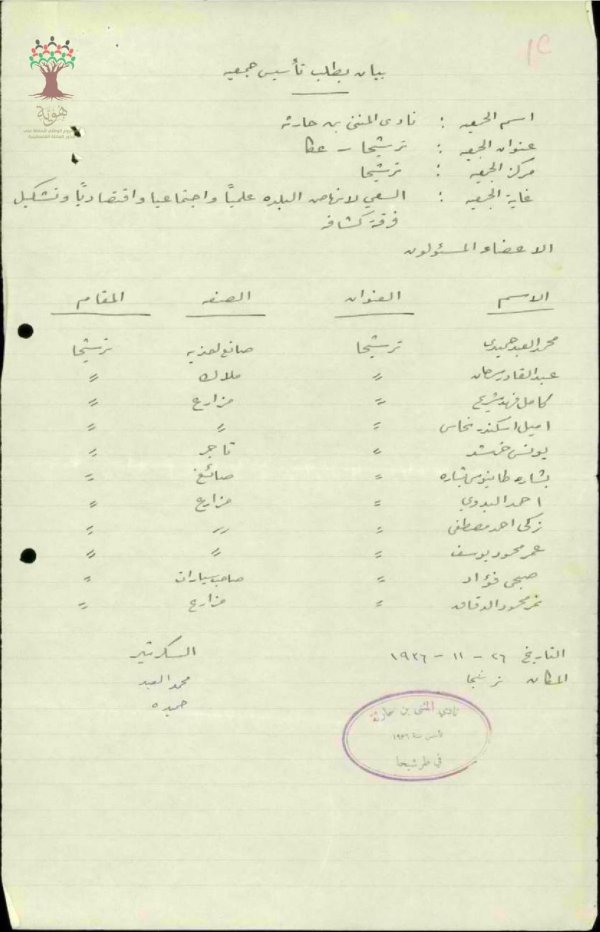 ١٤
هوية
بيان بطلب تأسيس جمعيه
اسم الجمعيه : نادى المثنى بن حارثه
عنوان الجمعيه : ترشيحا - عكا
مركز الجمعيه : ترشيحا
غاية الجمعيه : السعي لانهاض البلده علمياً واجتماعيا واقتصادياً وتشكيل
فرقة كشافه
الاعضاء المسئولون
الاسم العنوان الصنعه المقام
محمد العبد حميدي ترشيحا صانع احذيه ترشيحا
عبد القادر سرحان " ملاك "
كامل فهد شريح " مزارع "
اميل اسكندر نحاس " " "
يونس خرشد " تاجر "
بشاره طانيوس بشاره " صائغ "
احمد البدوي " مزارع "
زكي احمد مصطفى " " "
عمر محمود يوسف " " "
صبحي فؤاد " صاحب سيارات "
نمر محمود الدقاق " مزارع "
التاريخ ٢٦ - ١١ - ١٩٣٦ السكرتير
المكان ترشيحا محمد العبد
حميده
نادي المثنى بن حارثة
تأسس سنة ١٩٣٦
في طرشيحا